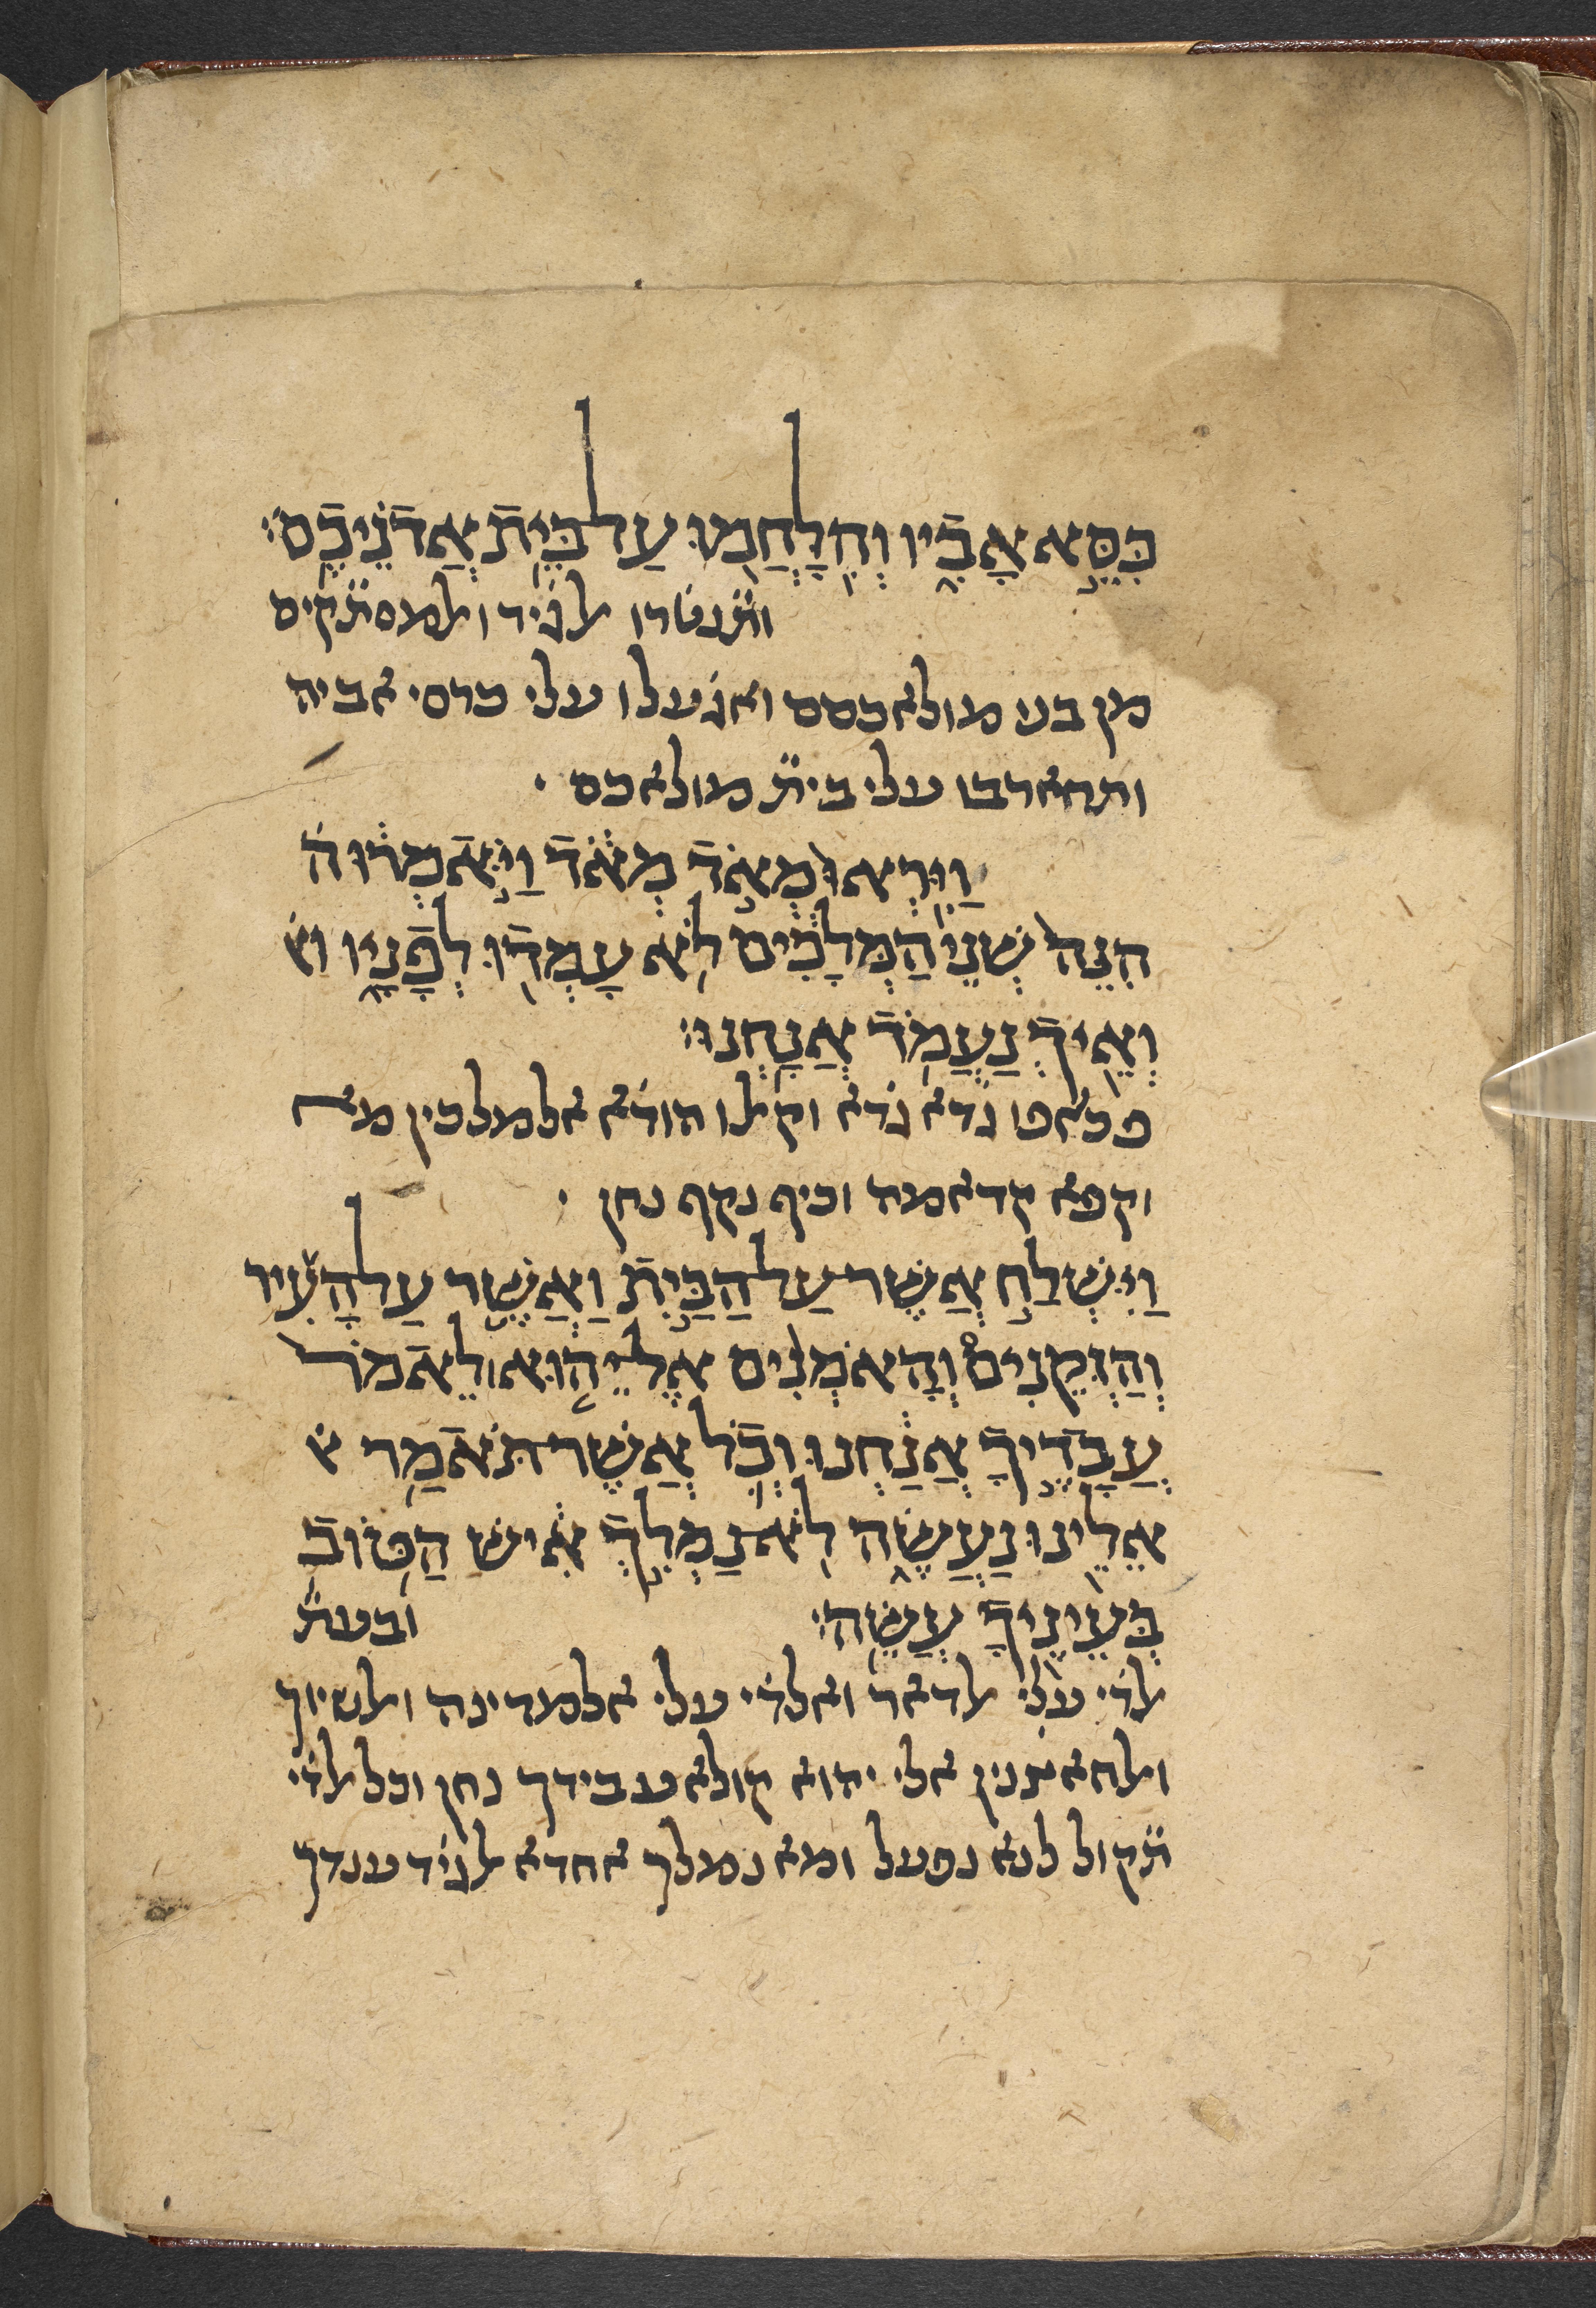 כִּסֵּ֣א אָבִ֑יו וְהִֽלָּחֲמ֖וּ עַל־בֵּ֥ית אֲדֹנֵיכֶֽם׃
ותנטׄרו לגׄיד ולמסתקים
מן בני מולאכם ואגׄעלו עלי כרסי אביה
ותחארבו עלי בית מולאכם ·
וַיִּֽרְאוּ֙ מְאֹ֣ד מְאֹ֔ד וַיֹּ֣אמְר֔וּ ה
הִנֵּה֙ שְׁנֵ֣י הַמְּלָכִ֔ים לֹ֥א עָמְד֖וּ לְפָנָ֑יו וא
וְאֵ֖יךְ נַעֲמֹ֥ד אֲנָֽחְנוּ׃
פכׄאפו גׄדא גׄדא וקאלו הודׄא אלמלכין מא
וקפא קדאמה וכיף נקף נחן ·
וַיִּשְׁלַ֣ח אֲשֶׁר־עַל־הַבַּ֣יִת וַאֲשֶׁ֪ר עַל־הָעִ֟יר
וְהַזְּקֵנִים֩ וְהָאֹמְנִ֨ים אֶל־יֵה֤וּא׀ לֵאמֹר֙
עֲבָדֶ֣יךָ אֲנַ֔חְנוּ וְכֹ֛ל אֲשֶׁר־תֹּאמַ֥ר א
אֵלֵ֖ינוּ נַעֲשֶׂ֑ה לֹֽא־נַמְלִ֣יךְ אִ֔ישׁ הַטּ֥וֹב
בְּעֵינֶ֖יךָ עֲשֵֽׂה׃ ובעת
אלדׄי עלי אלדאר ואלדׄי עלי אלמדינה ואלשיוך
ואלחאצׄנין אלי יהוא קולא עבידך נחן וכל אלדׄי
תקול לנא נפעל ומא נמלך אחדא אלגׄיד ענדך